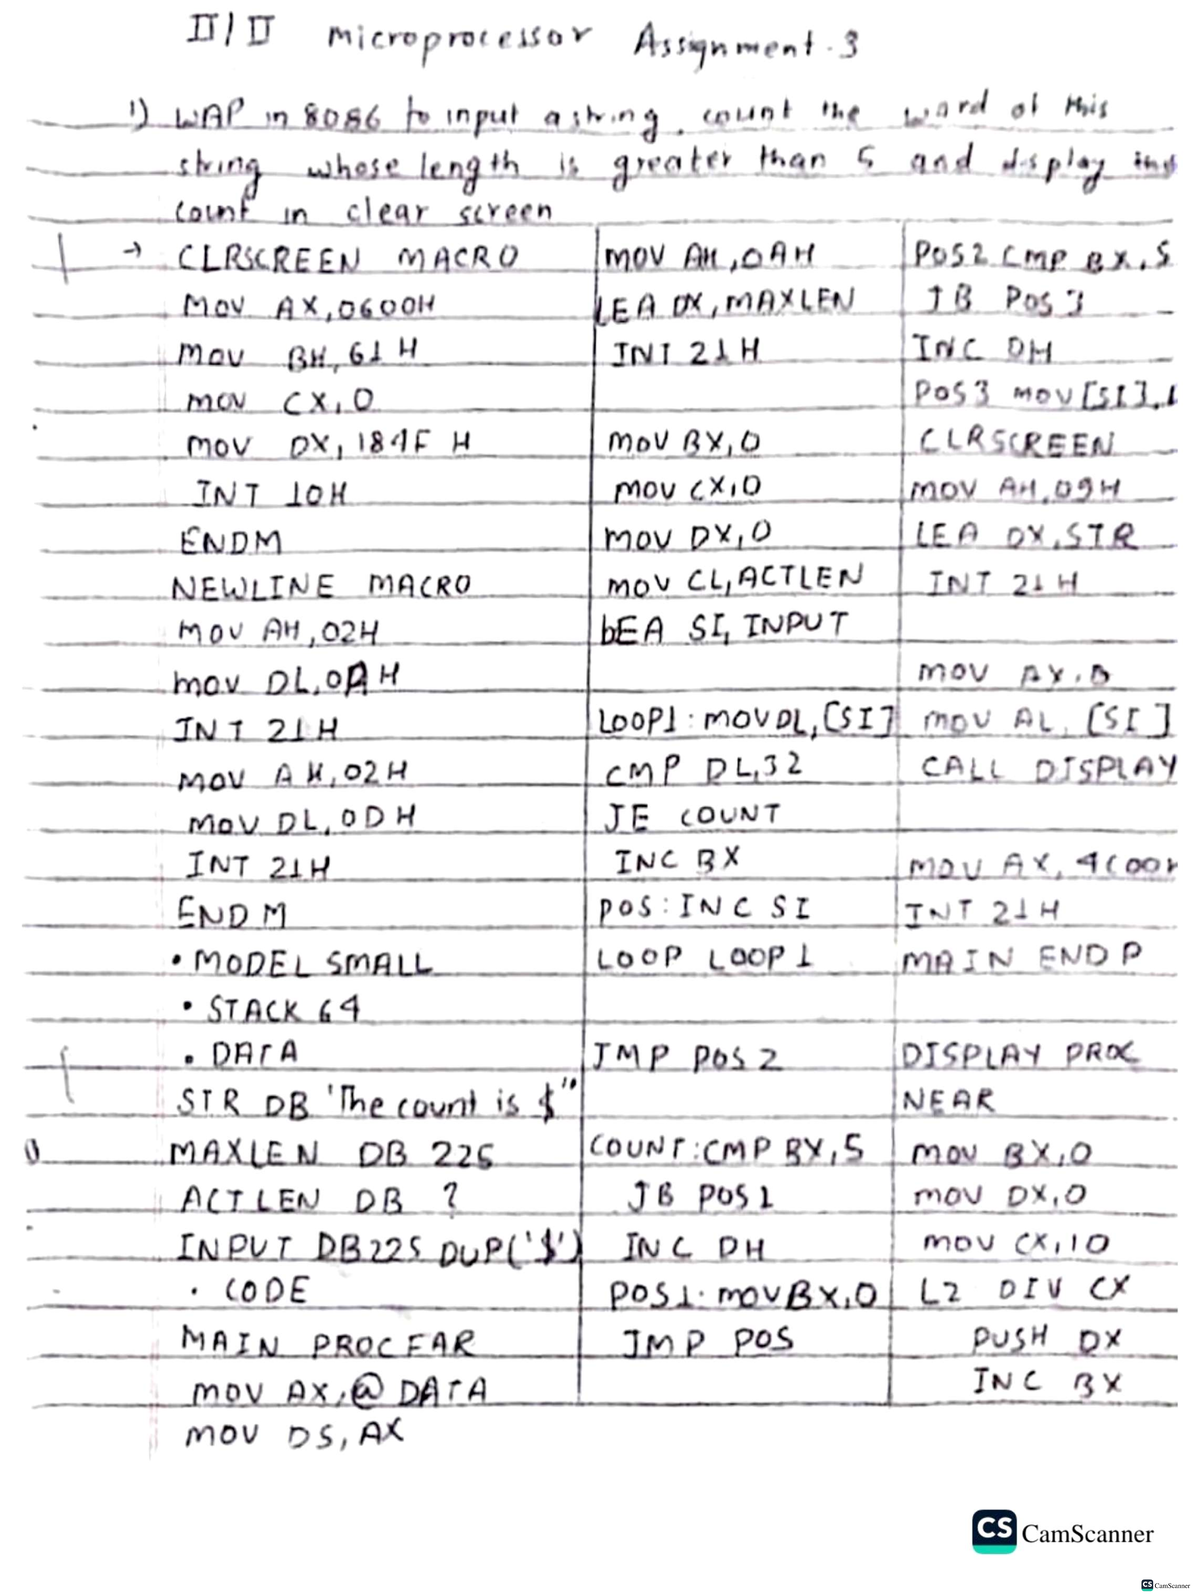 II/II microprocessor Assignment.3
1) WAP in 8086 to input a string. count the word of this
string whose length is greater than 5 and display
count in clear screen
→ CLRSCREEN MACRO
MOV AX,0600H
MOV BH,61H
MOV CX,0
MOV DX,184F H
INT 10H
ENDM
NEWLINE MACRO
MOV AH,02H
MOV DL,0AH
INT 21H
MOV AH,02H
MOV DL,0DH
INT 21H
ENDM
.MODEL SMALL
.STACK 64
.DATA
STR DB 'The count is $"
MAXLEN DB 225
ACTLEN DB ?
INPUT DB 225 DUP('$')
.CODE
MAIN PROC FAR
MOV AX,@DATA
MOV DS,AX
MOV AH,0AH
LEA DX,MAXLEN
INT 21H
MOV BX,0
MOV CX,0
MOV DX,0
MOV CL,ACTLEN
LEA SI,INPUT
LOOP1:MOV DL,[SI]
CMP DL,32
JE COUNT
INC BX
POS:INC SI
LOOP LOOP1
JMP POS2
COUNT:CMP BX,5
JB POS1
INC DH
POS1:MOV BX,0
JMP POS
POS2 CMP BX,5
JB POS3
INC DH
POS3 MOV [SI],
CLRSCREEN
MOV AH,09H
LEA DX,STR
INT 21H
MOV AX,0
MOV AL,[SI]
CALL DISPLAY
MOV AX,4C00H
INT 21H
MAIN ENDP
DISPLAY PROC
NEAR
MOV BX,0
MOV DX,0
MOV CX,10
L2 DIV CX
PUSH DX
INC BX
CS CamScanner
CS CamScanner